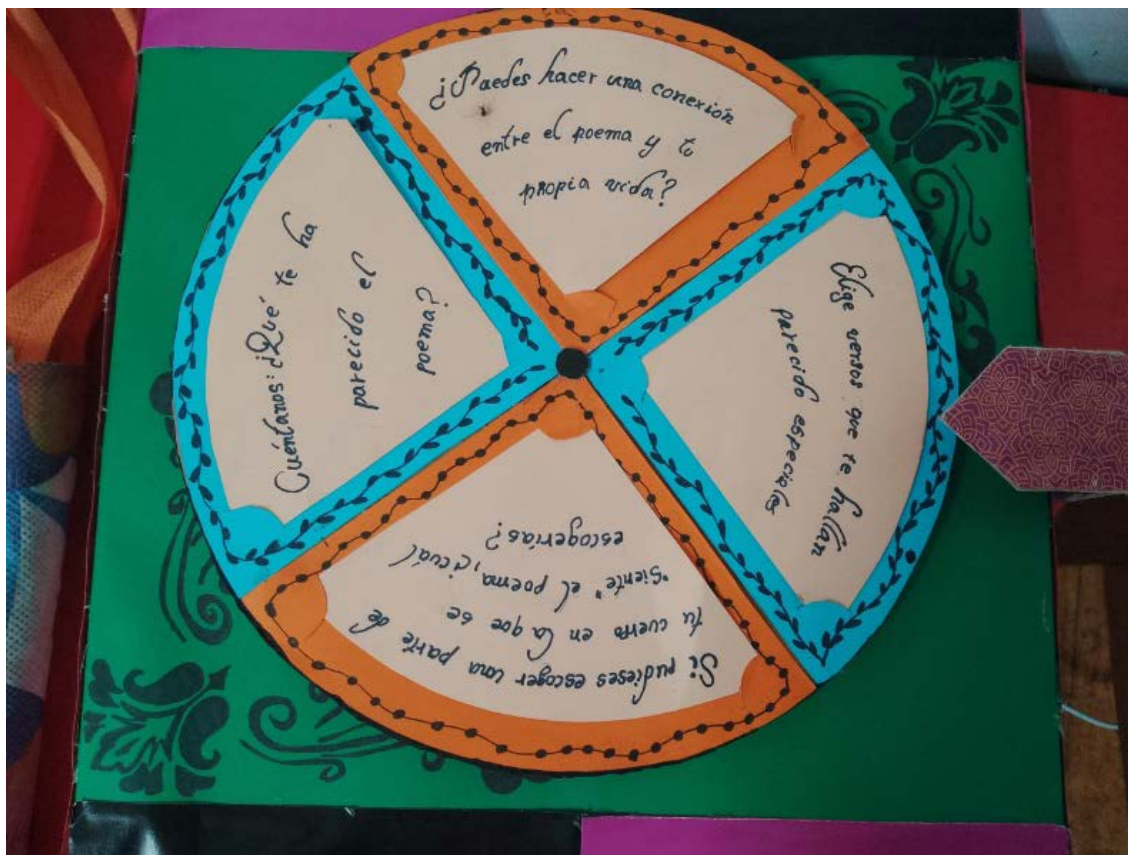 ¿Puedes hacer una conexión
entre el poema y tu
propia vida?
Elige versos que te hallan
parecido especiales
Si pudieses escoger una parte de
tu cuerpo en la que se
"siente" el poema, ¿cuál
escogerías?
Cuéntanos: ¿Qué te ha
parecido el
poema?